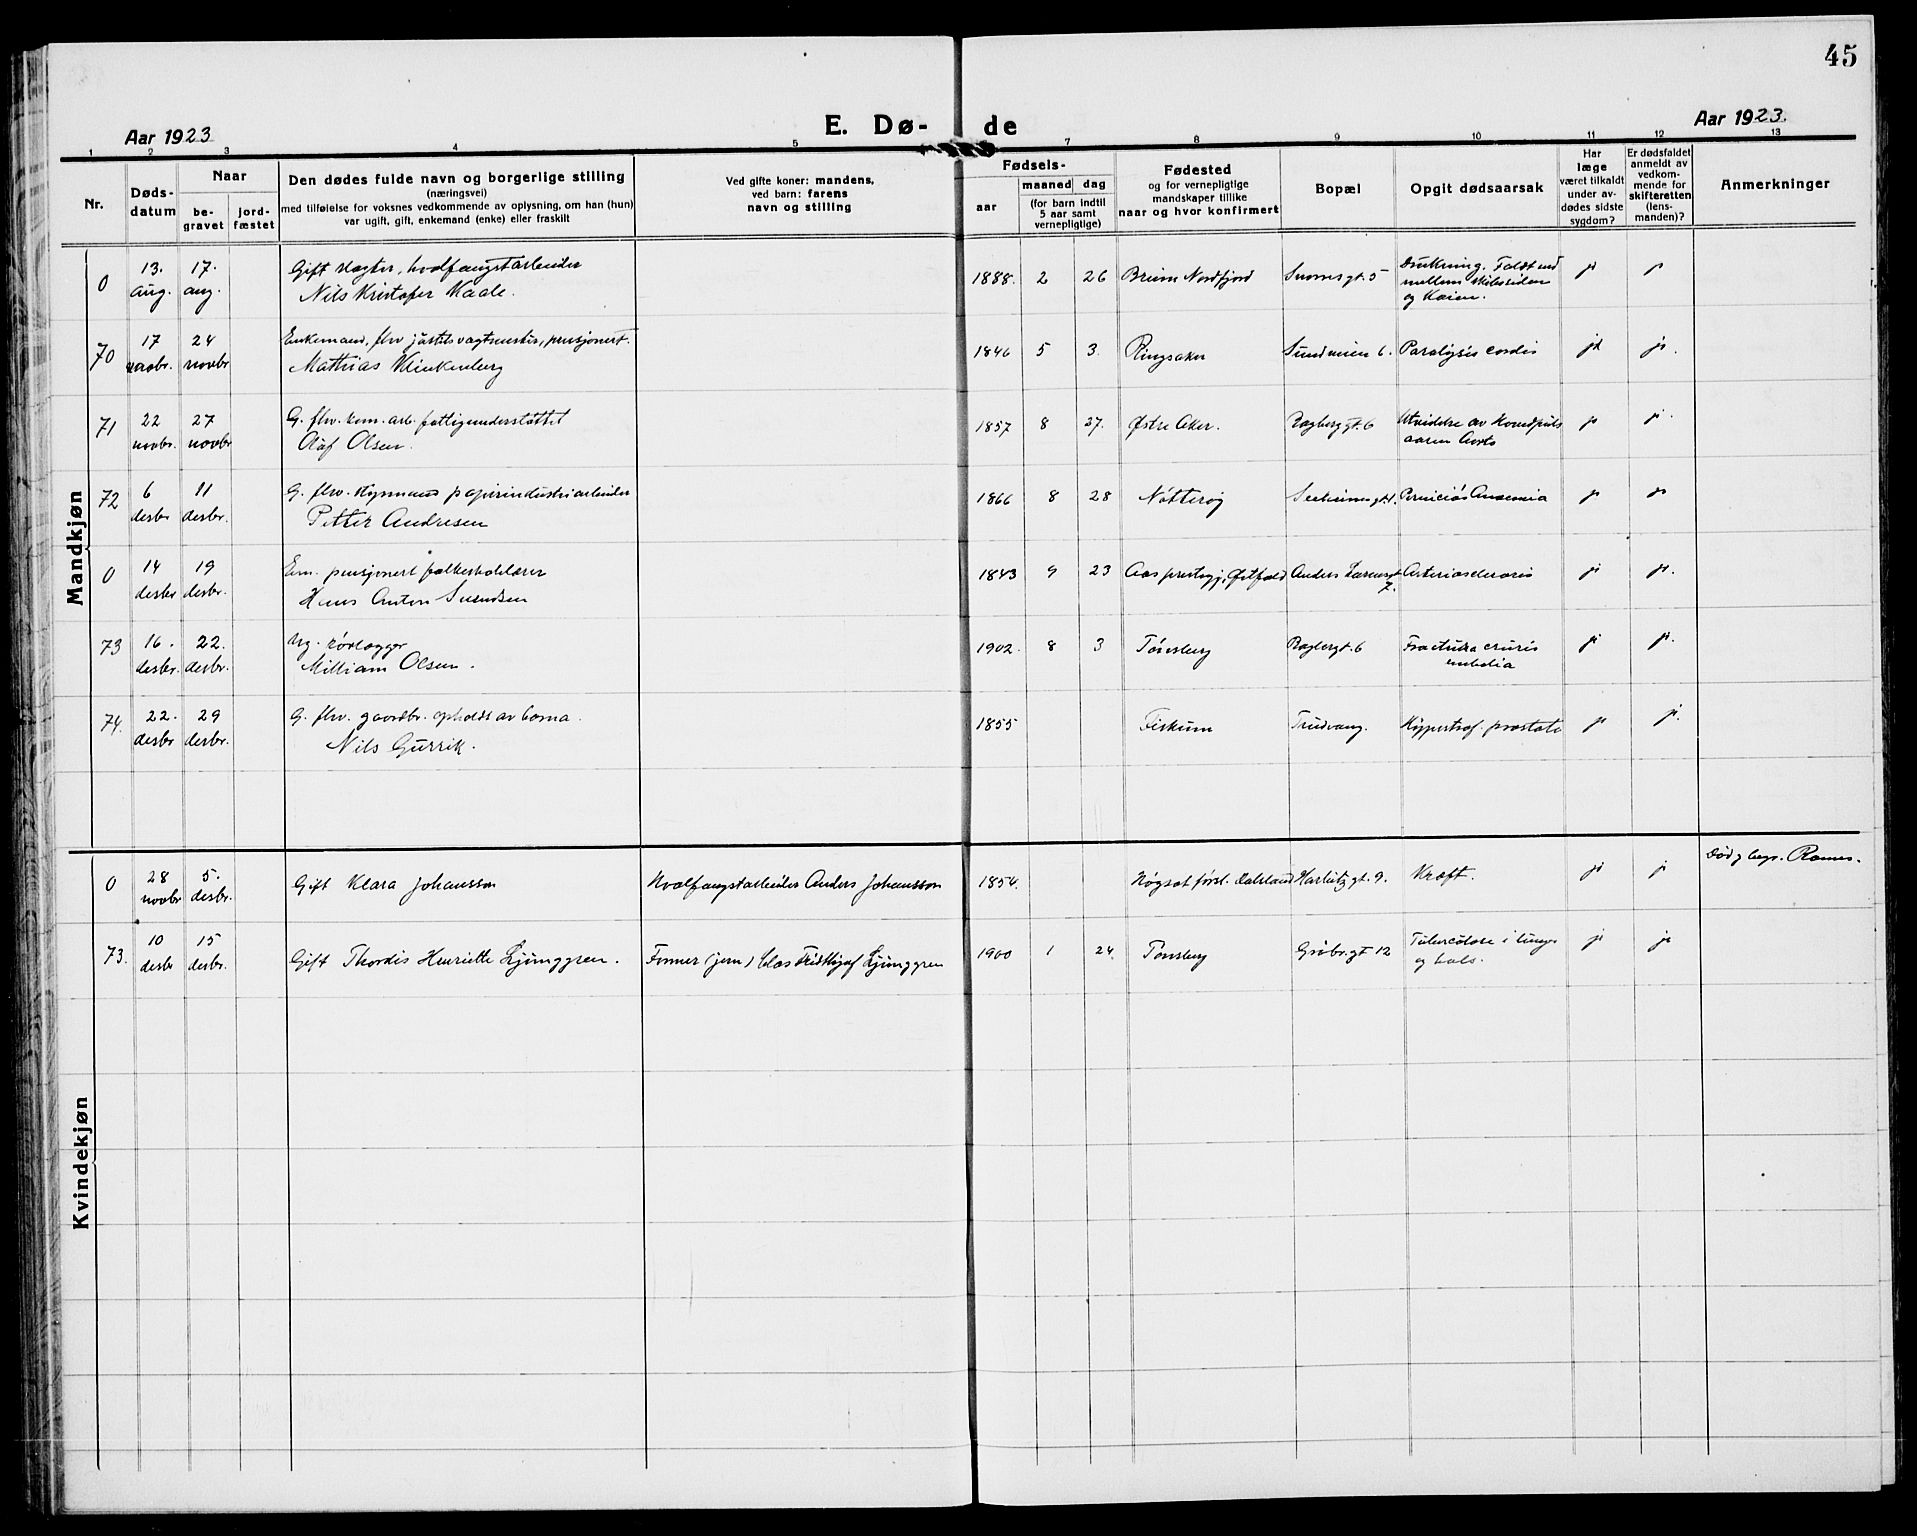 45
E. Dø- de
Aar 1923
Aar 1923.
1 2 3 4 5 7 8 9 10 11 12 13
Nr.
Døds-
datum
Naar
be-
gravet
jord-
fæstet
Den dødes fulde navn og borgerlige stilling
(næringsvei)
med tilføielse for voksnes vedkommende av oplysning, om han (hun)
var ugift, gift, enkemand (enke) eller fraskilt
Ved gifte koner: mandens,
ved barn: farens
navn og stilling
Fødsels-
aar
maaned dag
(for barn indtil
5 aar samt
vernepligtige)
Fødested
og for vernepligtige
mandskaper tillike
naar og hvor konfirmert
Bopæl
Opgit dødsaarsak
Har
læge
været tilkaldt
under av-
dødes sidste
sygdom?
Er dødsfaldet
anmeldt av
vedkom-
mende for
skifteretten
(lens-
manden)?
Anmerkninger
Mandkjøn
0 13. aug. 17. aug.
Gift hvalfangstarbeider
Nils Kristofer Kaale.
1888. 2 26 Breim Nordfjord 5
Drukning. Faldt ned
mellem skibssiden
og Kaien.
ja ja
70 17 novbr. 24 novbr
Enkemand, fhv pensjonert.
Mathias Klinkenberg
1846 5 3. Ringsaker 6. Paralysis cordis ja ja.
71 22 novbr. 27 novbr
G. fhv. kom. arb. fattigunderstøttet
Olaf Olsen.
1857 8 27. Østre Aker. Baglergt. 6
Utvidelse av Hovedpuls
aaren Aorta
ja ja.
72 6 desbr 11 desbr.
G. fhv. papirindustriarbeider
Petter Andresen
1866 8 28 Nøtterøy Perniciøs Anæmia ja ja
0 14 desbr 19 desbr.
Em. pensjonert folkeskolelærer
Hans Anton Svendsen
1843 9 23 Aas prestegj, Østfold Anders 7. Arteriosclerosis ja ja.
73 16. desbr. 22. desbr.
Ug. rørlægger
William Olsen.
1902. 8 3 Tønsberg Baglergt. 6
Fractura cruris
embolia
ja ja.
74. 22. desbr 29 desbr.
G. fhv. gaardbr. opholds av barna.
Nils Gurrik.
1855 Fiskum Trudvang. Hypertrof. prostata ja ja.
Kvindekjøn
0 28 novbr 5. desbr.
Gift Klara Johansson
Hvalfangstarbeider Anders Johansson
1854. førsl. Dalsland gt. 9. Kræft. ja ja
Død og begr. Ramnes.
73. 10 desbr 15 desbr.
Gift Thordis Henriette Ljunggren.
Former (jern) Claes Fridthjof Ljunggren
1900 1 24. Tønsberg gt 12
Tuberculose i lunger
og hals.
ja ja